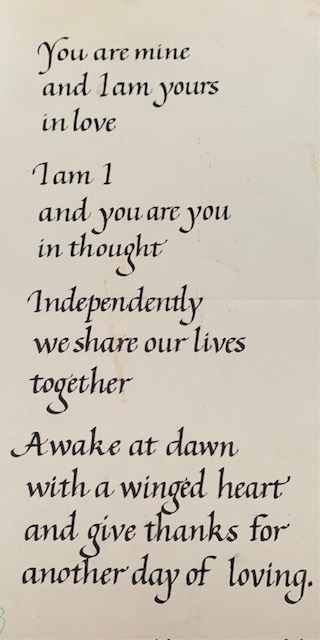 You are mine
and I am yours
in love
I am I
and you are you
in thought
Independently
we share our lives
together
Awake at dawn
with a wingéd heart
and give thanks for
another day of loving.